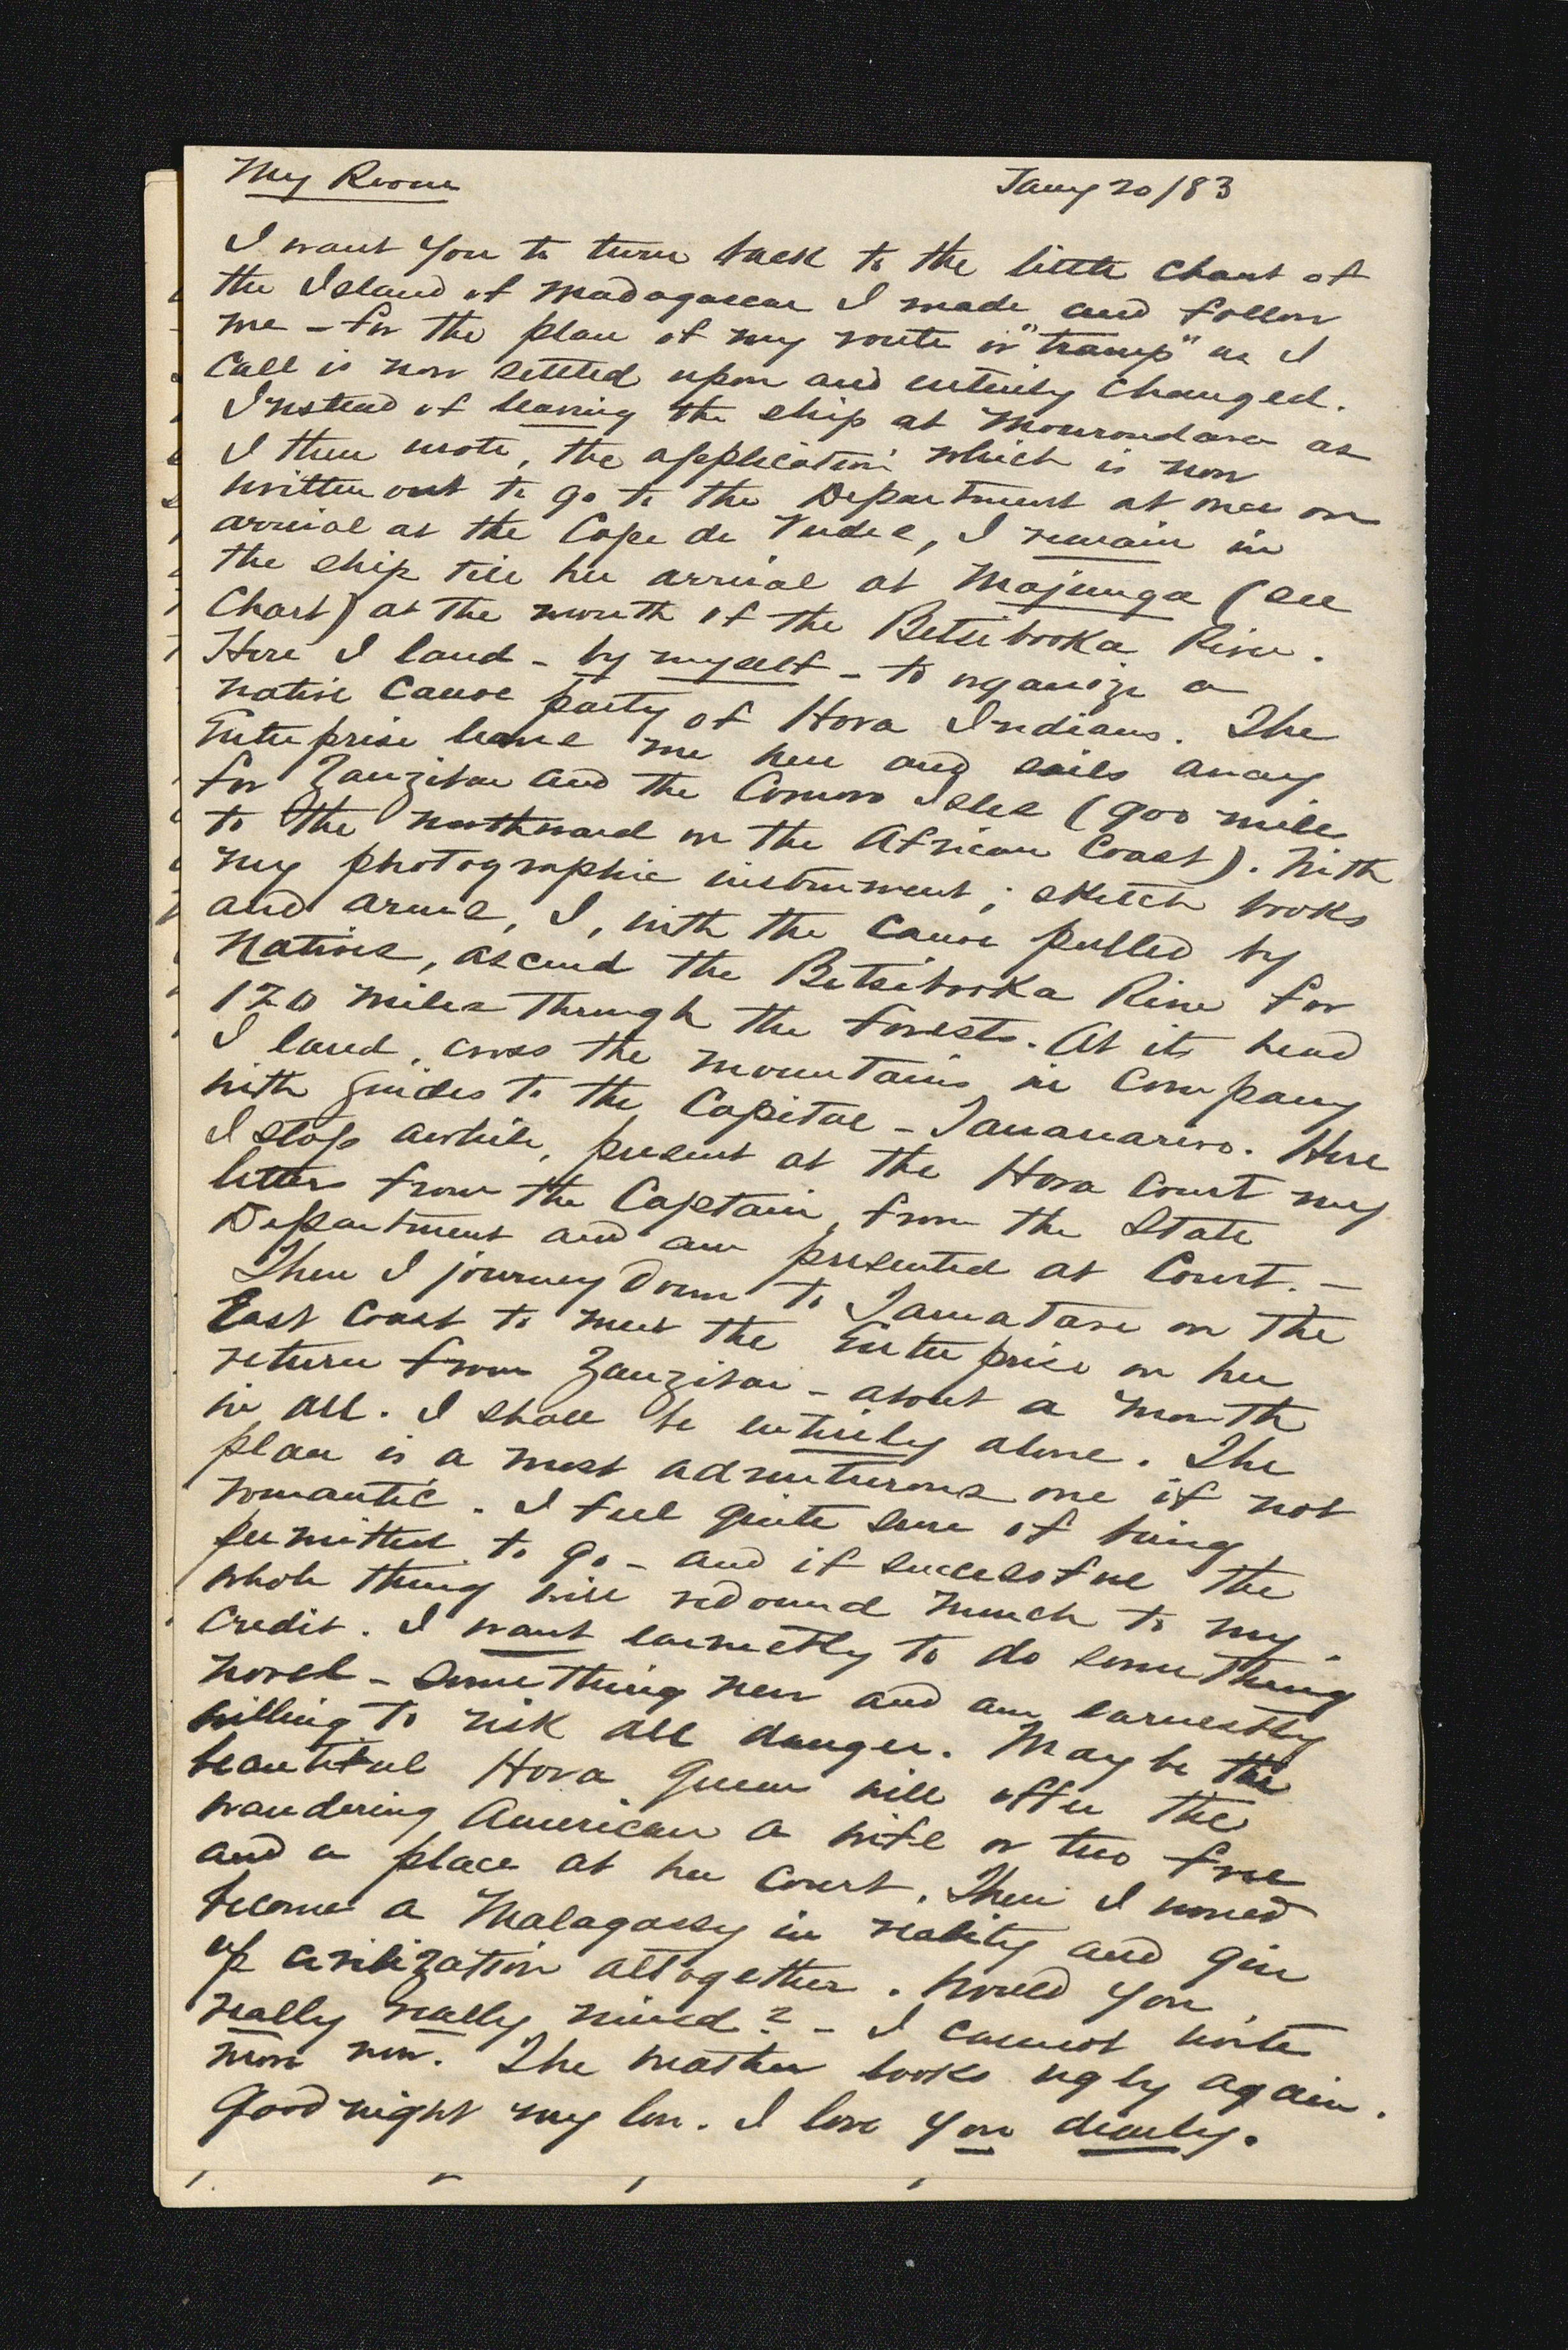 My Room
Jany 20/83
I want you to turn back to the little chart of
the Island of Madagascar I made and follow
me - for the plan of my route or "tramp" as I
call is now settled upon and entirely changed.
Instead of leaving the ship at Mourondava as
I then wrote, the application which is now
written out to go to the Department at once on
arrival at the Cape de Verdes, I remain in
the ship till her arrival at Majunga (see
Chart) at the mouth of the Betsibooka River.
Here I land - by myself - to organize a
native canoe party of Hova Indians. The
Enterprise leaves me here and sails away
for Zanzibar and the Comoro Isles (900 miles
to the northward on the African Coast). With
my photographic instrument; sketch books
and arms, I, with the canoe pulled by
natives, ascend the Betsibooka River for
120 miles through the forests. At its head
I land, cross the mountains in company
with guides to the Capital - Tananarivo. Here
I stop awhile, present at the Hova Court my
letters from the Captain, from the State
Department and am presented at Court. -
Then I journey down to Tamatave on the
East Coast to meet the Enterprise on her
return from Zanzibar - about a month
in all. I shall be entirely alone. The
plan is a most adventurous one if not
romantic. I feel quite sure of being
permitted to go - and if successful the
whole thing will redound much to my
credit. I want earnestly to do something
novel - something new and am earnestly
willing to risk all danger. May be the
beautiful Hova Queen will offer the
wandering American a wife or two free
and a place at her Court. Then I would
become a Malagassy in reality and give
up civilization altogether. Would you
really really mind? - I cannot write
more now. The weather looks ugly again.
Good night my love. I love you dearly.